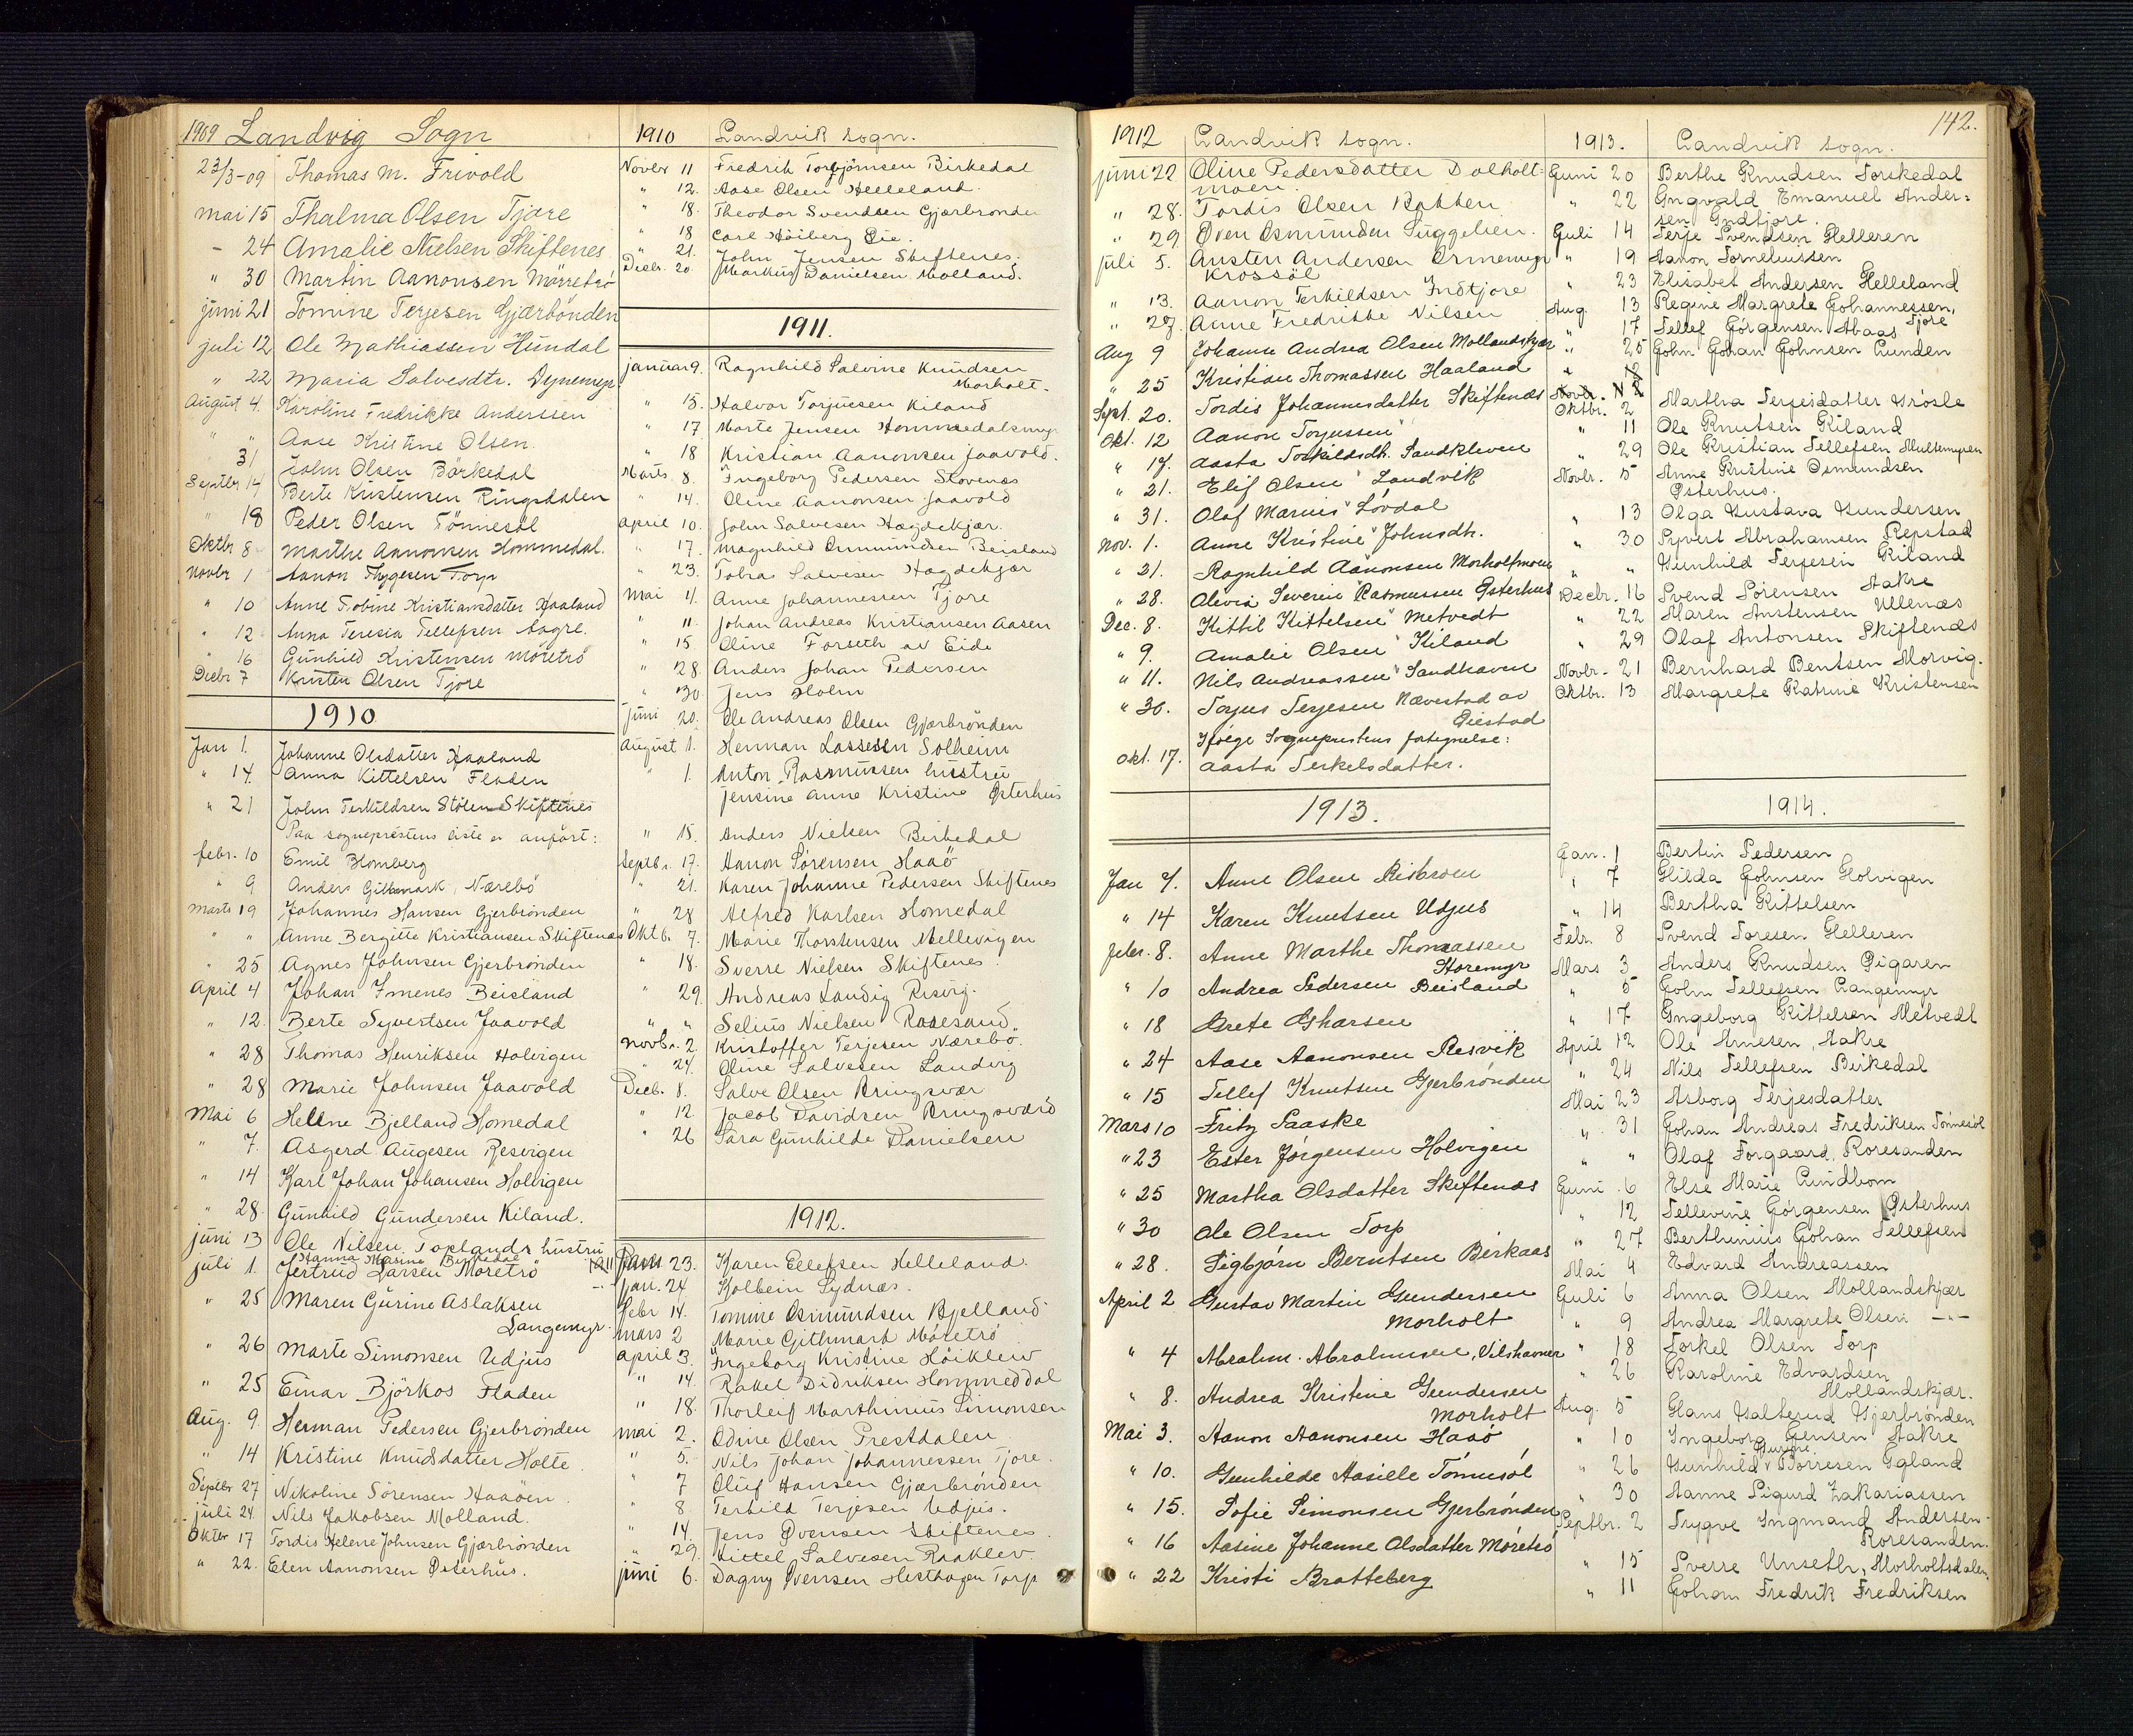 1909 Landvig Sogn
23/3-09 Thomas M. Frivold
mai 15 Thalma Olsen Tjore
- 24 Amalie Nielsen Skiftenes
" 30 Martin Aanonsen Mörretrö
juni 21 Tomine Terjesen Gjærbönden
juli 12 Ole Mathiassen Hundal
" 22 Maria Salvesdtr. Dynemyr
August 4. Karoline Fredrikke Anderssen
" " Aase Kristine Olsen.
31 John Olsen Börkedal
Septbr 14 Berte Kristensen Ringsdalen
" 18 Peder Olsen Tönnesöl
Oktbr 8 Marthe Aanonsen Hommedal.
Novbr 1 Aanon Thygesen Torp
" 10 Anne Tobine Kristiansdatter Haaland
" 12 Anna Teresia Tellefsen Aagre.
" 16 Gunhild Kristensen Möretrö
Decbr 7 Kristen Olsen Tjore
1910
Jan 1. Johanne Olsdatter Haaland
" 14. Anna Kittelsen Fladen
" 21 John Terkildsen Stölen Skiftenes
Paa sogneprestens liste er anført:
febr. 10 Emil Blomberg
" 9 Anders Githmark, Nærebö
Marts 19 Johannes Hansen Gjerbrönden
" " Anne Bergitte Kristiansen Skiftenes
" 25 Agnes Johnsen Gjerbrönden
April 4 Johan Imenes Beisland
" 12. Berte Syvertsen Jaavold
" 28 Thomas Henriksen Holvigen
" 28 Marie Johnsen Jaavold
Mai 6 Hellne Bjelland Homedal
" 7. Asgerd Augesen Resvigen
" 14 Karl Johan Johansen Holvigen
" 28. Gunhild Gundersen Kiland.
juni 13 Ole Nilsen Toplands hustru
Hanna Masine Birkedal
juli 1. Jertrud Larsen Möretrö
" 25 Maren Gurine Aslaksen
Langemyr.
" 26 Marte Simonsen Udjus
" 25 Einar Björkos Fladen
Aug. 9. Herman Pedersen Gjerbrönden
" 14 Kristine Knudsdatter Holte
Septbr 27 Nikoline Sörensen Haaöen.
juli 24. Nils Jakobsen Molland.
Oktbr 17 Tordis Helene Johnsen Gjærbrönden
" 22. Elen Aanonsen Østerhus.
1910 Landvik sogn.
Novbr 11 Fredrik Torbjörnsen Birkedal
" 12. Aase Olsen Helleland.
" 18. Theodor Svendsen Gjærbronden
" 18 Carl Höiberg Eie.
" 21. John Jensen Skiftenes.
Decbr. 20 Markus Danielsen Molland.
1911.
januar 9. Ragnhild Salvine Knudsen
Morholt.
" 15. Halvor Torjusen Kiland
" 17 Marte Jensen Hommedalsmyr
" 18 Kristian Aanonsen Jaavold.
Marts 8. Ingeborg Pedersen Stovenes
" 14. Oline Aanonsen Jaavold
April 10. John Salvesen Hægdekjær.
" 17. Magnhild Omundsen Beisland
" 23. Tobia Salvesen Hægdekjær
Mai 4. Anne Johannessen Tjore
" 11. Johan Andreas Kristiansen Aasen
" 15 Oline Forseth av Eide
" 28 Anders Johan Pedersen
" 30 Jens Holm
juni 20. Ole Andreas Olsen Gjærbrönden
August 1. Herman Lassesen Solheim
" 1. Anton Rasmussen hustru
Jensine Anne Kristine Østerhus
" 15. Anders Nielsen Birkedal
Septbr. 17. Aanon Sörensen Haaö
" 21. Karen Johanne Pedersen Skiftenes
" 28 Alfred Karlsen Homedal
Oktb. 7. Marie Thorstensen Mellevigen
" 18. Sverre Nielsen Skiftenes.
" 29. Andreas Landig Resvig.
" " Selius Nielsen Roresand
Novb. 2. Kristoffer Terjesen Nærebö.
" 24. Oline Salvesen Landvig
Decb. 8. Salve Olsen Bringsvær
" 12. Jacob Davidsen Bringsværd
" 26 Sara Gunhilde Danielsen
1912.
1911 23. Karen Ellefsen Helleland.
Jan. 24 Kolbein Sydnæs.
Febr 14. Tomine Osmundsen Bjelland
mars 2 Marie Githmark Möretrö
april 3. Ingeborg Kristine Höiklev
" 14. Rakel Didriksen Hommeddal
" 18. Thorleif Marthinius Simonsen
mai 2. Odine Olsen Prestdalen
" 5. Nils Johan Johannessen Tjore.
" 7 Oluf Hansen Gjærbrönden
" 8. Terkild Terjesen Udjus.
" 14. Jens Evensen Skiftenes.
" 29. Kittel Salvesen Raaklev.
juni 6. Dagny Evensen Hesthagen Torp
142.
1912 Landvik sogn.
juni 22 Oline Pedersdatter Dalholt=
moen.
" 28. Tordis Olsen Kabben
" 29. Even Osmunden Suggelien.
juli 5. Austen Andersen Ormemyr
Krossöl
" 13. Aanon Terkildsen Indtjore
" 27. Anne Fredrikke Nilsen
Aug 9 Johanne Andrea Olsen Mollandskjær
" 25 Kristian Thomassen Haaland
Sept. 20. Tordis Johannesdatter Skiftenæs
Okt. 12 Aanon Torjussen "
" 17. Aasta Torkildsdt. Sandkleven
" 21. Elif Olsen " Landvik
" 31. Olaf Marius " Lövdal
Nov. 1. Anne Kristine " Johnsdtr.
" 21. Ragnhild Aanonsen Morholtmoen
" 28. Olevia Severine Rasmussen Østerhus
Dec. 8. Kittil Kittelsen " Metvedt
" 9. Amalie Olsen " Kiland
" 11. Nils Andreassen " Sandhaven
" 30. Torjus Terjesen Nævestad av
Eiestad
Ifølge Sogneprestens fortegnelse:
Okt. 17. Aasta Terkelsdatter.
1913.
Jan 4. Anne Olsen Risbroen
" 14 Karen Knutsen Udjus
Febr. 8. Anne Marthe Thomassen
Storemyr
" 10 Andrea Pedersen Beisland
" 18 Grete Isharsen
" 24 Aase Aanonsen Resvik
" 15 Tellef Knutsen Gjerbrönden
Mars 10 Fritz Saaske
" 23 Ester Jörgensen Holvigen
" 25 Martha Olsdatter Skiftenæs
" 30 Ole Olsen Torp
" 28. Sigbjörn Berntsen Birkaas
April 2 Gustav Martin Gundersen
Morholt
" 4 Abrahm. Abrahmsen, Vilshavner
" 8. Andrea Kristine Gundersen
Morholt
Mai 3. Aanon Aanonsen Haaö
" 10. Gunhilde Aasille Tönnesöl
" 15. Sofie Simonsen Gjerbrönden
" 16 Aasine Johanne Olsdatter Möretrö
" 22 Kristi Bratteberg
1913. Landvik sogn.
Juni 20 Berthe Knudsen Torskedal
" 22 Ingvald Emanuel Ander=
sen Indtjore.
Juli 14 Terje Svendsen Helleren
" 19 Aanon Torneliussen
" 23 Elisabet Andersen Helleland
Aug. 13 Regine Margrete Johannessen,
Tjore
" 17 Tellef Jörgensen Abaas
" 25 John Johan Johnsen Lunden
" 12
Oktbr. 2 Martha Terjesdatter Grösle
" 11 Ole Knutsen Kiland
" 29 Ole Kristian Tellefsen Multemyren
Novbr. 5 Anne Kristine Osmundsen
Østerhus.
" 13 Olga Gustava Gundersen
" 30 Syvert Abrahamsen Repstad
" " Gunhild Terjesen Kiland
Decbr. 16 Svend Sörensen Aakre
" 22 Maren Anstensen Ullenæs
" 29 Olaf Antonsen Skiftenæs
Novbr. 21 Bernhard Bentsen Morvig.
Oktbr. 13 Margrete Katrine Kristensen
1914.
Jan. 1 Bertin Pedersen
" 7 Hilda Johnsen Holvigen
" 14 Bertha Kittelsen
Febr. 8 Svend Toresen Helleren
Mars 3 Anders Knudsen Digaren
" 5 John Tellefsen Langemyr
" 17 Ingeborg Kittelsen Metvedt
April 12 Ole Arnesen, Aakre
" 24 Nils Tellefsen Birkedal
Mai 23 Asborg Terjesdatter
" 31 Johan Andreas Fredriksen Tönnesöl
" " Olaf Torgaard, Roresanden
Juni 6 Else Marie Lindbom
" 12 Tellevine Jörgensen Østerhus
" 27 Berthinius Johan Tellefsen
Mai 4 Edvard Andreassen
Juli 6 Anna Olsen Mollandskjær
" 9 Andrea Margrete Olsen —"—
" 18 Torkel Olsen Torp
" 26 Karoline Edvardsen
Mollandskjær.
Aug. 5 Hans Halterud Gjerbrönden
" 10 Ingeborg Jensen Aakre
" 26 Gunhild Gurine Börresen Egland
" 30 Aanne Sigurd Zakariassen
Septbr. 2 Trygve Ingmand Andersen
Roresanden.
" 15 Sverre Unseth, Morholtsdalen
" 11 Johan Fredrik Fredriksen